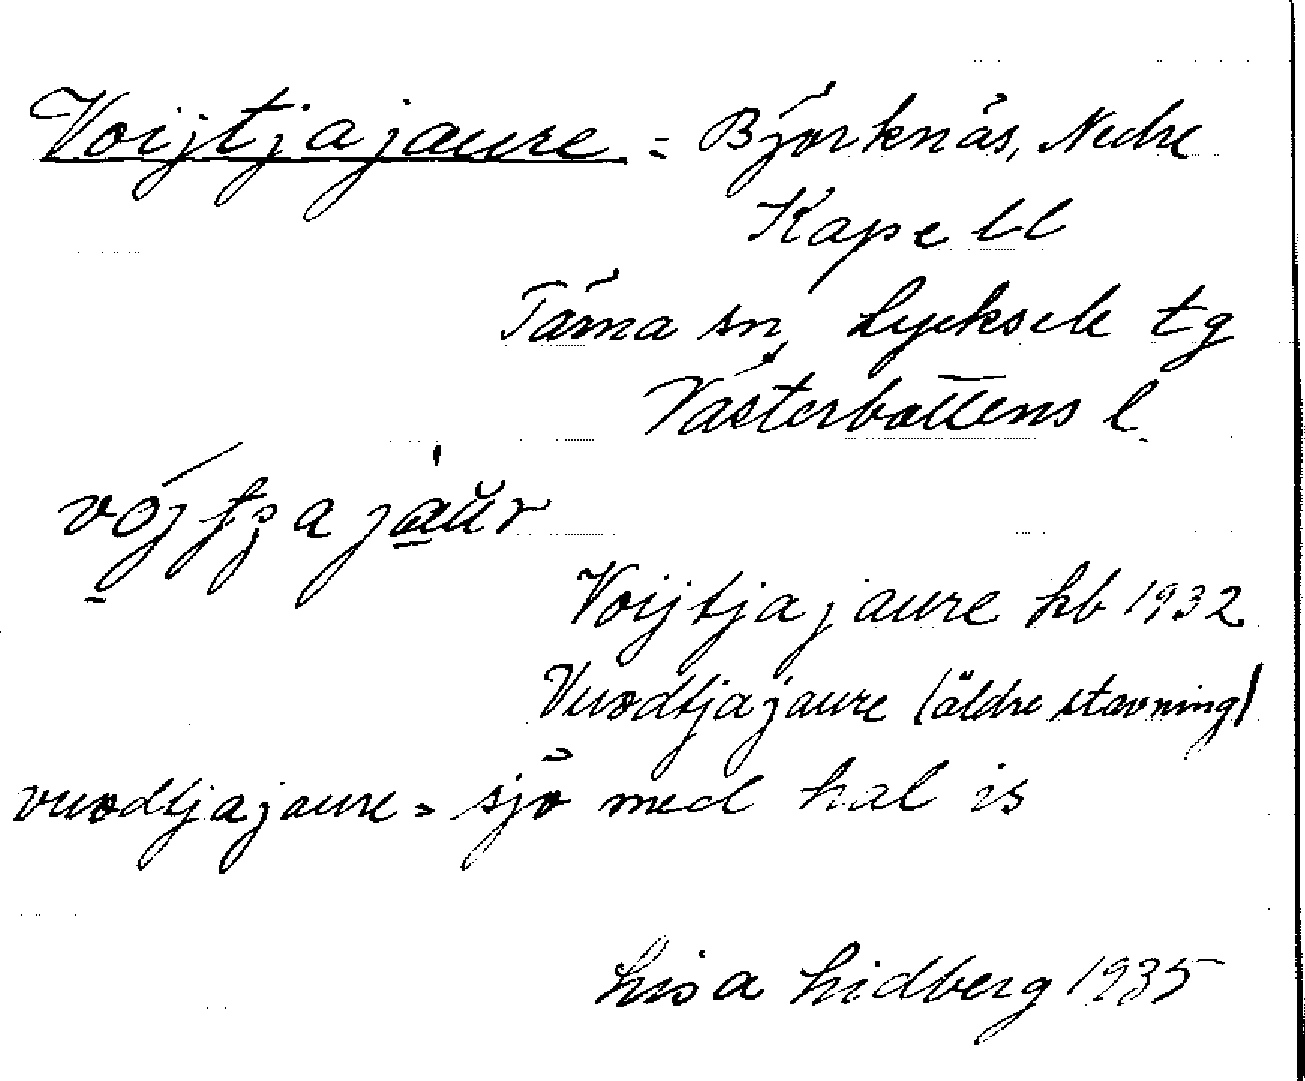 Voijtjajaure = Björknäs, Nedre
Kapell
Tärna sn, Lycksele tg
Västerbottens l.
Voijtjajaure hb 1932
Vuodtjajaure (äldre stavning)
vuodtjajaure = sjö med hal is
Lisa Lidberg 1935